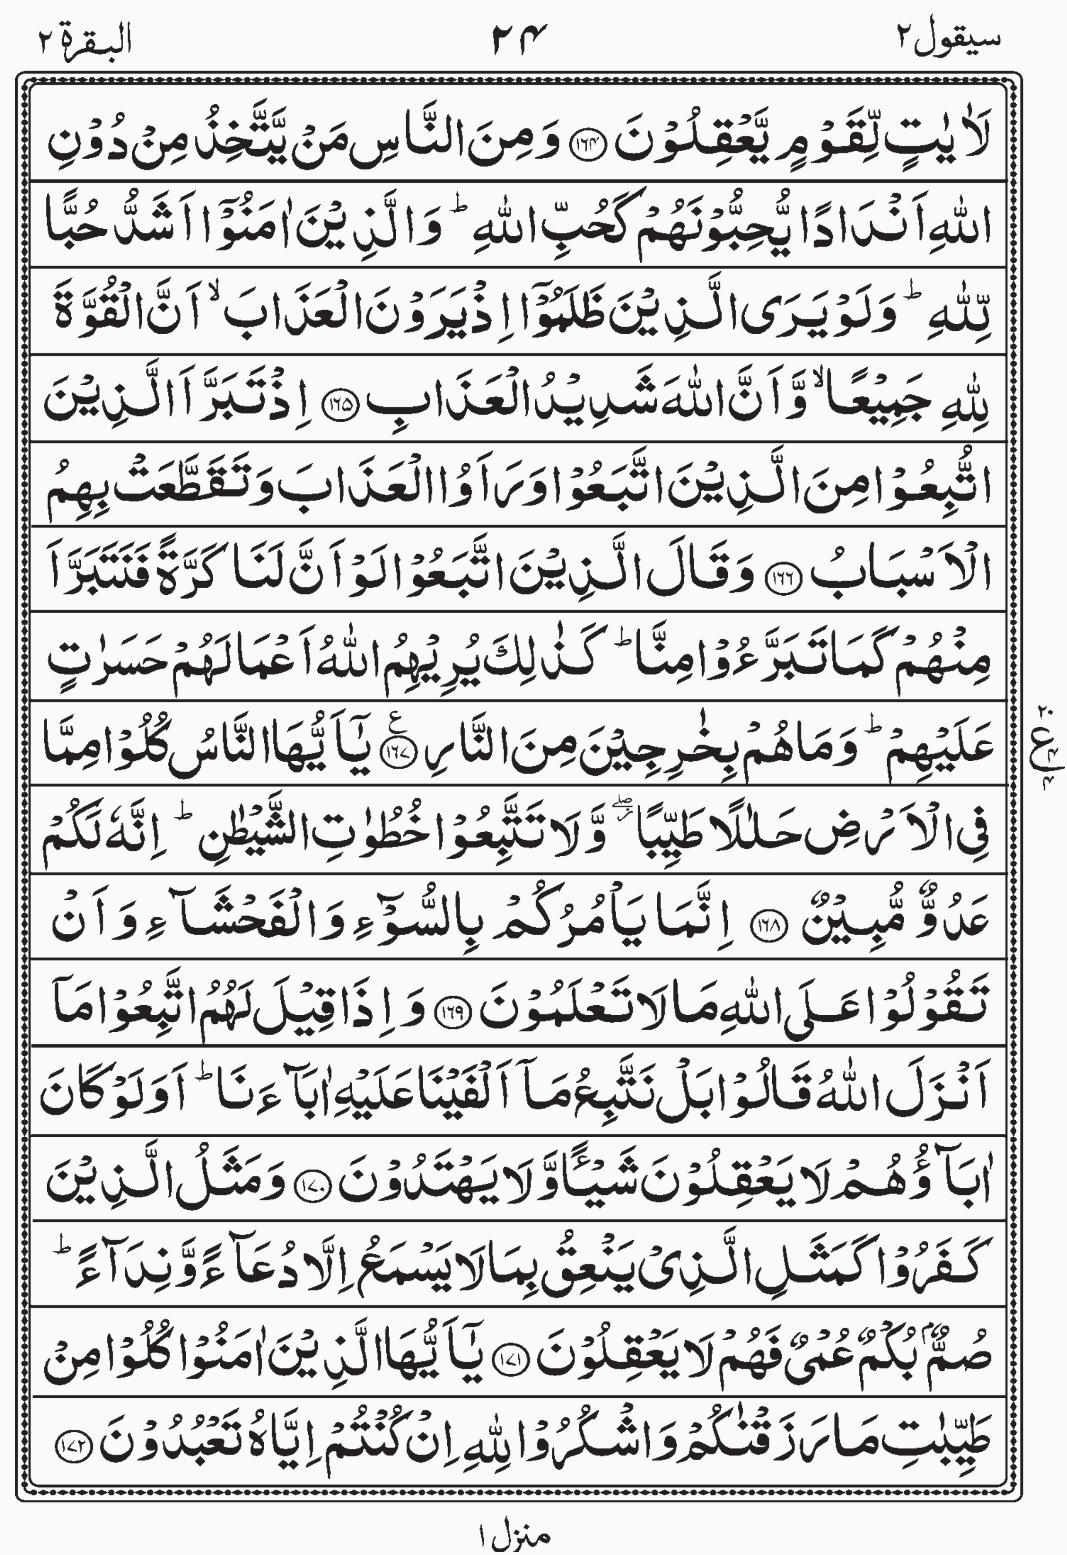 سيقول ٢ ٢٤ البقرة ٢
لَاٰيٰتٍ لِّقَوْمٍ يَّعْقِلُوْنَ ﴿١٦٤﴾ وَمِنَ النَّاسِ مَنْ يَّتَّخِذُ مِنْ دُوْنِ
اللّٰهِ اَنْدَادًا يُّحِبُّوْنَهُمْ كَحُبِّ اللّٰهِ ؕ وَالَّذِيْنَ اٰمَنُوْۤا اَشَدُّ حُبًّا
لِّلّٰهِ ؕ وَلَوْ يَرَى الَّذِيْنَ ظَلَمُوْۤا اِذْ يَرَوْنَ الْعَذَابَ ۙ اَنَّ الْقُوَّةَ
لِلّٰهِ جَمِيْعًا ۙ وَّاَنَّ اللّٰهَ شَدِيْدُ الْعَذَابِ ﴿١٦٥﴾ اِذْ تَبَرَّاَ الَّذِيْنَ
اتُّبِعُوْا مِنَ الَّذِيْنَ اتَّبَعُوْا وَرَاَوُا الْعَذَابَ وَتَقَطَّعَتْ بِهِمُ
الْاَسْبَابُ ﴿١٦٦﴾ وَقَالَ الَّذِيْنَ اتَّبَعُوْا لَوْ اَنَّ لَنَا كَرَّةً فَنَتَبَرَّاَ
مِنْهُمْ كَمَا تَبَرَّءُوْا مِنَّا ؕ كَذٰلِكَ يُرِيْهِمُ اللّٰهُ اَعْمَالَهُمْ حَسَرٰتٍ
عَلَيْهِمْ ؕ وَمَا هُمْ بِخٰرِجِيْنَ مِنَ النَّارِ ﴿١٦٧﴾ ع يٰۤاَيُّهَا النَّاسُ كُلُوْا مِمَّا
٢٠ ع ٤ ٤
فِى الْاَرْضِ حَلٰلًا طَيِّبًا ۖ وَّلَا تَتَّبِعُوْا خُطُوٰتِ الشَّيْطٰنِ ؕ اِنَّهٗ لَكُمْ
عَدُوٌّ مُّبِيْنٌ ﴿١٦٨﴾ اِنَّمَا يَاْمُرُكُمْ بِالسُّوْٓءِ وَالْفَحْشَآءِ وَاَنْ
تَقُوْلُوْا عَلَى اللّٰهِ مَا لَا تَعْلَمُوْنَ ﴿١٦٩﴾ وَاِذَا قِيْلَ لَهُمُ اتَّبِعُوْا مَاۤ
اَنْزَلَ اللّٰهُ قَالُوْا بَلْ نَتَّبِعُ مَاۤ اَلْفَيْنَا عَلَيْهِ اٰبَآءَنَا ؕ اَوَلَوْ كَانَ
اٰبَآؤُهُمْ لَا يَعْقِلُوْنَ شَيْـًٔا وَّلَا يَهْتَدُوْنَ ﴿١٧٠﴾ وَمَثَلُ الَّذِيْنَ
كَفَرُوْا كَمَثَلِ الَّذِيْ يَنْعِقُ بِمَا لَا يَسْمَعُ اِلَّا دُعَآءً وَّنِدَآءً ؕ
صُمٌّۢ بُكْمٌ عُمْيٌ فَهُمْ لَا يَعْقِلُوْنَ ﴿١٧١﴾ يٰۤاَيُّهَا الَّذِيْنَ اٰمَنُوْا كُلُوْا مِنْ
طَيِّبٰتِ مَا رَزَقْنٰكُمْ وَاشْكُرُوْا لِلّٰهِ اِنْ كُنْتُمْ اِيَّاهُ تَعْبُدُوْنَ ﴿١٧٢﴾
منزل ١